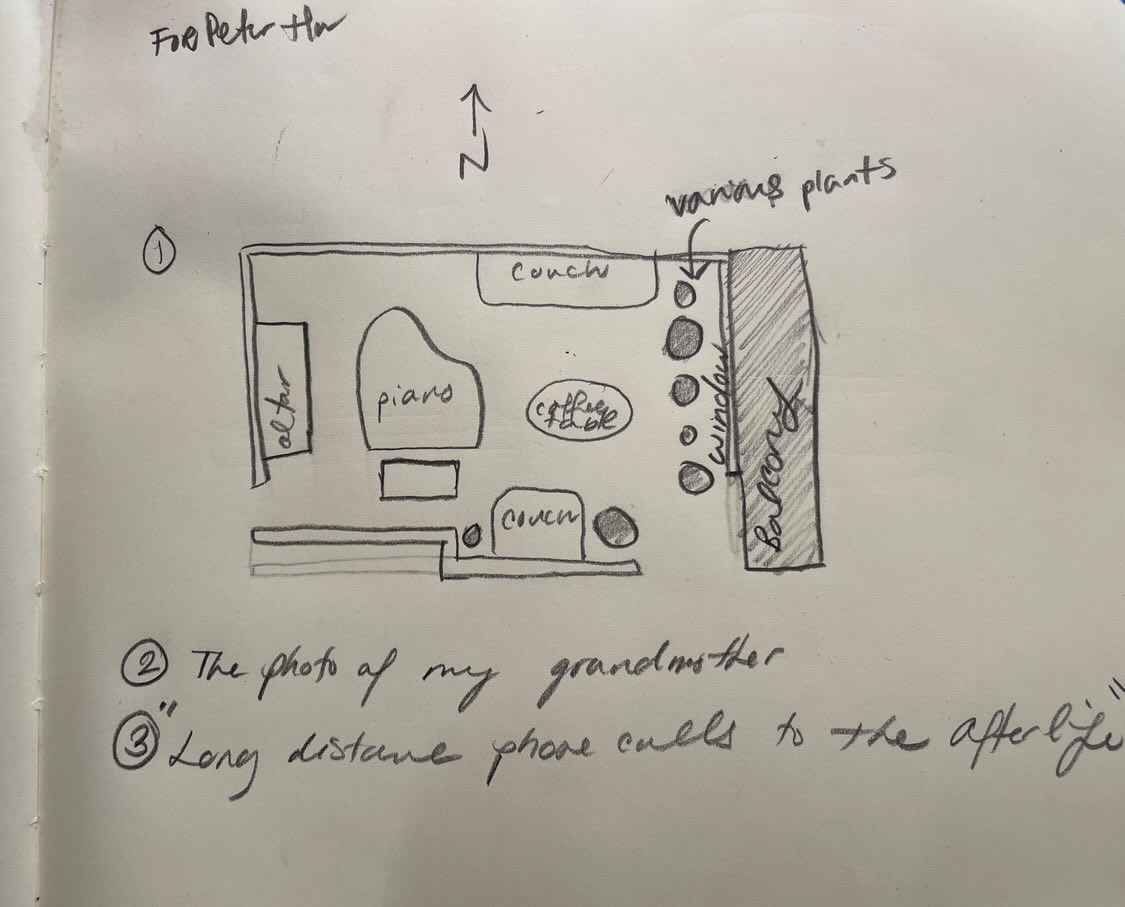 For Peter
N
various plants
①
couch
altar
piano
coffee
table
window
Balcony
couch
② The photo of my grandmother
③ "Long distance phone calls to the afterlife"